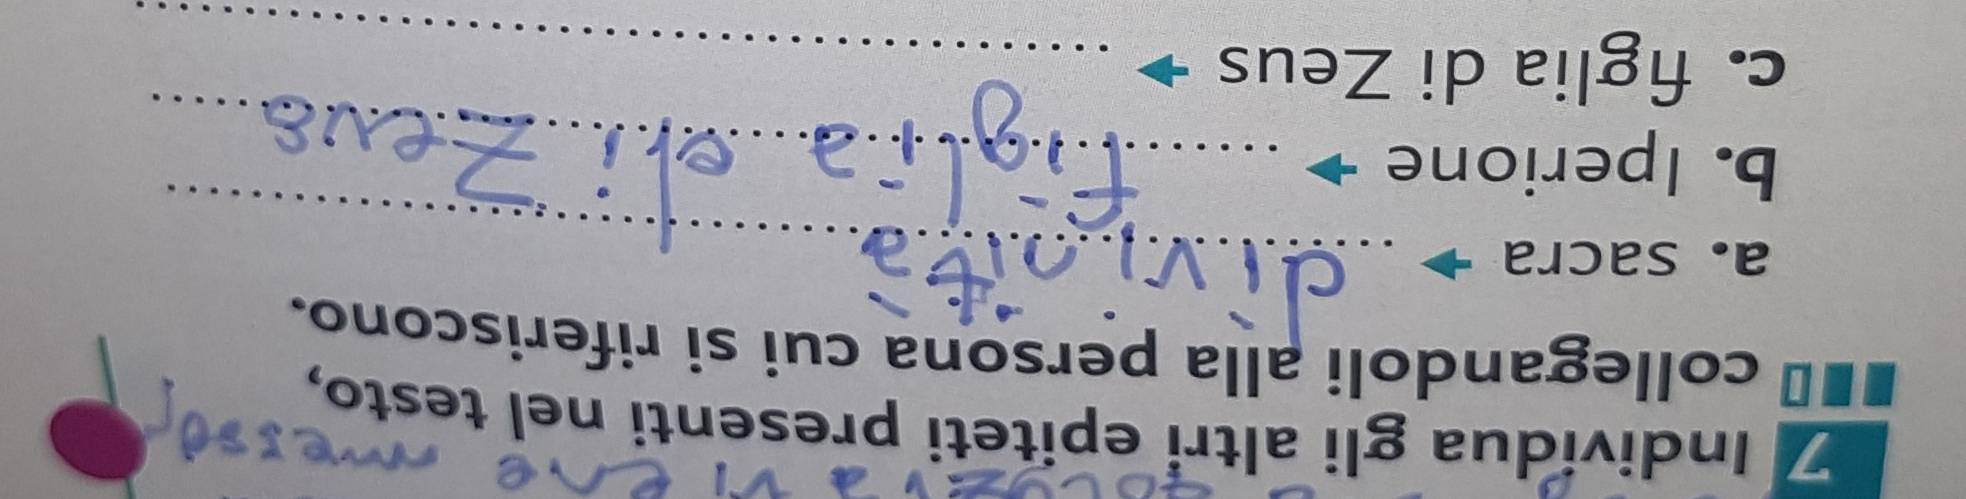 7 Individua gli altri epiteti presenti nel testo,
collegandoli alla persona cui si riferiscono.
a. sacra → divinità
b. Iperione → figlia di Zeus
c. figlia di Zeus →